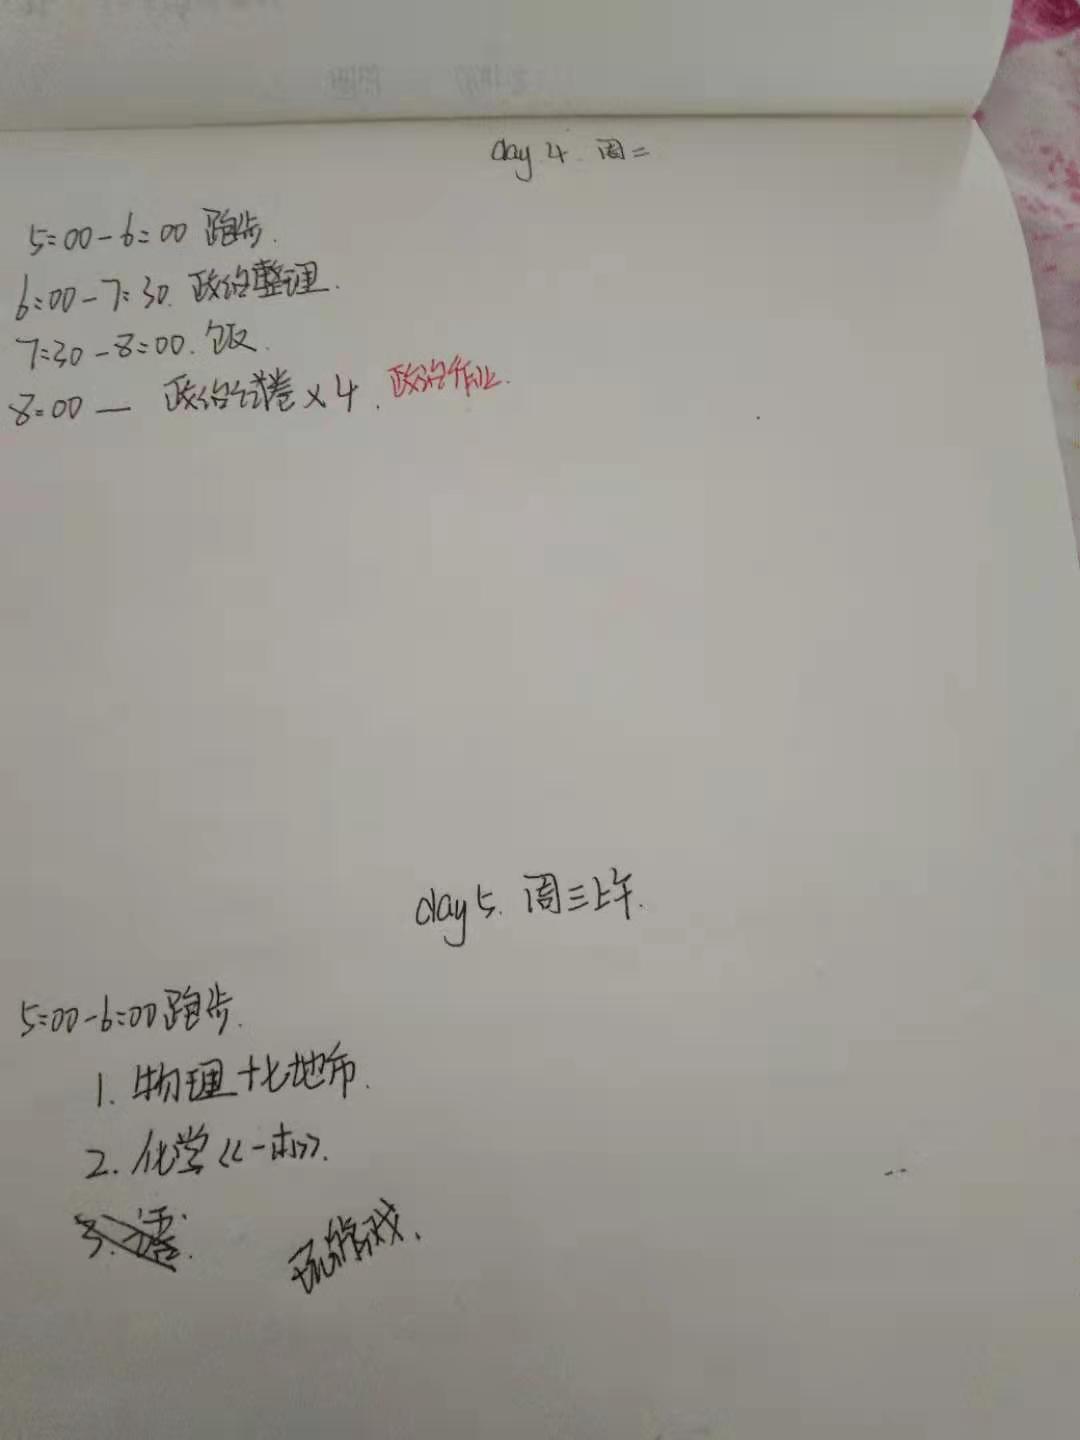 day 4. 周二
5:00-6:00 跑步.
6:00-7:30. 政治整理.
7:30-8:00. 饭.
8:00— 政治试卷×4. 政治作业.
day5. 周三上午.
5:00-6:00跑步.
1. 物理十七地市.
2. 化学《一本》.
3. 语.
玩游戏.